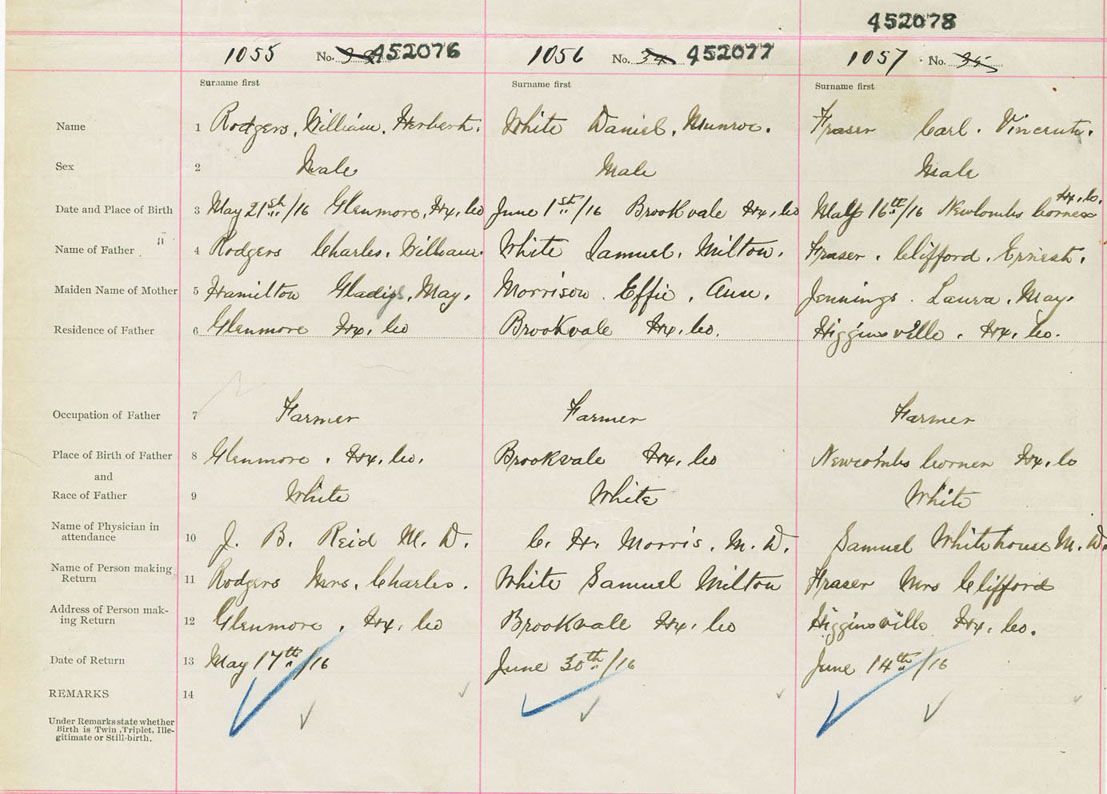 452078
1055 No. 33 452076 1056 No. 34 452077 1057 No. 35
Surname first Surname first Surname first
Name 1 Rodgers, William, Herbert. White Daniel, Munroe. Fraser Carl. Vincent.
Sex 2 Male Male Male
Date and Place of Birth 3 May 21st/16 Glenmore, Hx, Co June 1st/16 Brookvale Hx, Co May 16th/16 Newcombs Corner Hx, Co.
Name of Father 4 Rodgers Charles, William. White Samuel, Milton. Fraser. Clifford. Ernest.
Maiden Name of Mother 5 Hamilton Gladys, May. Morrison. Effie. Ann. Jennings. Laura, May.
Residence of Father 6 Glenmore Hx, Co Brookvale Hx, Co. Higginsville. Hx, Co.
Occupation of Father 7 Farmer Farmer Farmer
Place of Birth of Father 8 Glenmore. Hx, Co. Brookvale Hx, Co Newcombs Corner Hx, Co
and
Race of Father 9 White White White
Name of Physician in
attendance 10 J. B. Reid M. D. C. H. Morris. M. D. Samuel Whitehouse M. D.
Name of Person making
Return 11 Rodgers Mrs. Charles. White Samuel Milton Fraser Mrs Clifford
Address of Person mak-
ing Return 12 Glenmore, Hx, Co Brookvale Hx, Co Higginsville Hx, Co.
Date of Return 13 May 17th/16 June 30th/16 June 14th/16
REMARKS 14
Under Remarks state whether
Birth is Twin, Triplet, Ille-
gitimate or Still-birth.